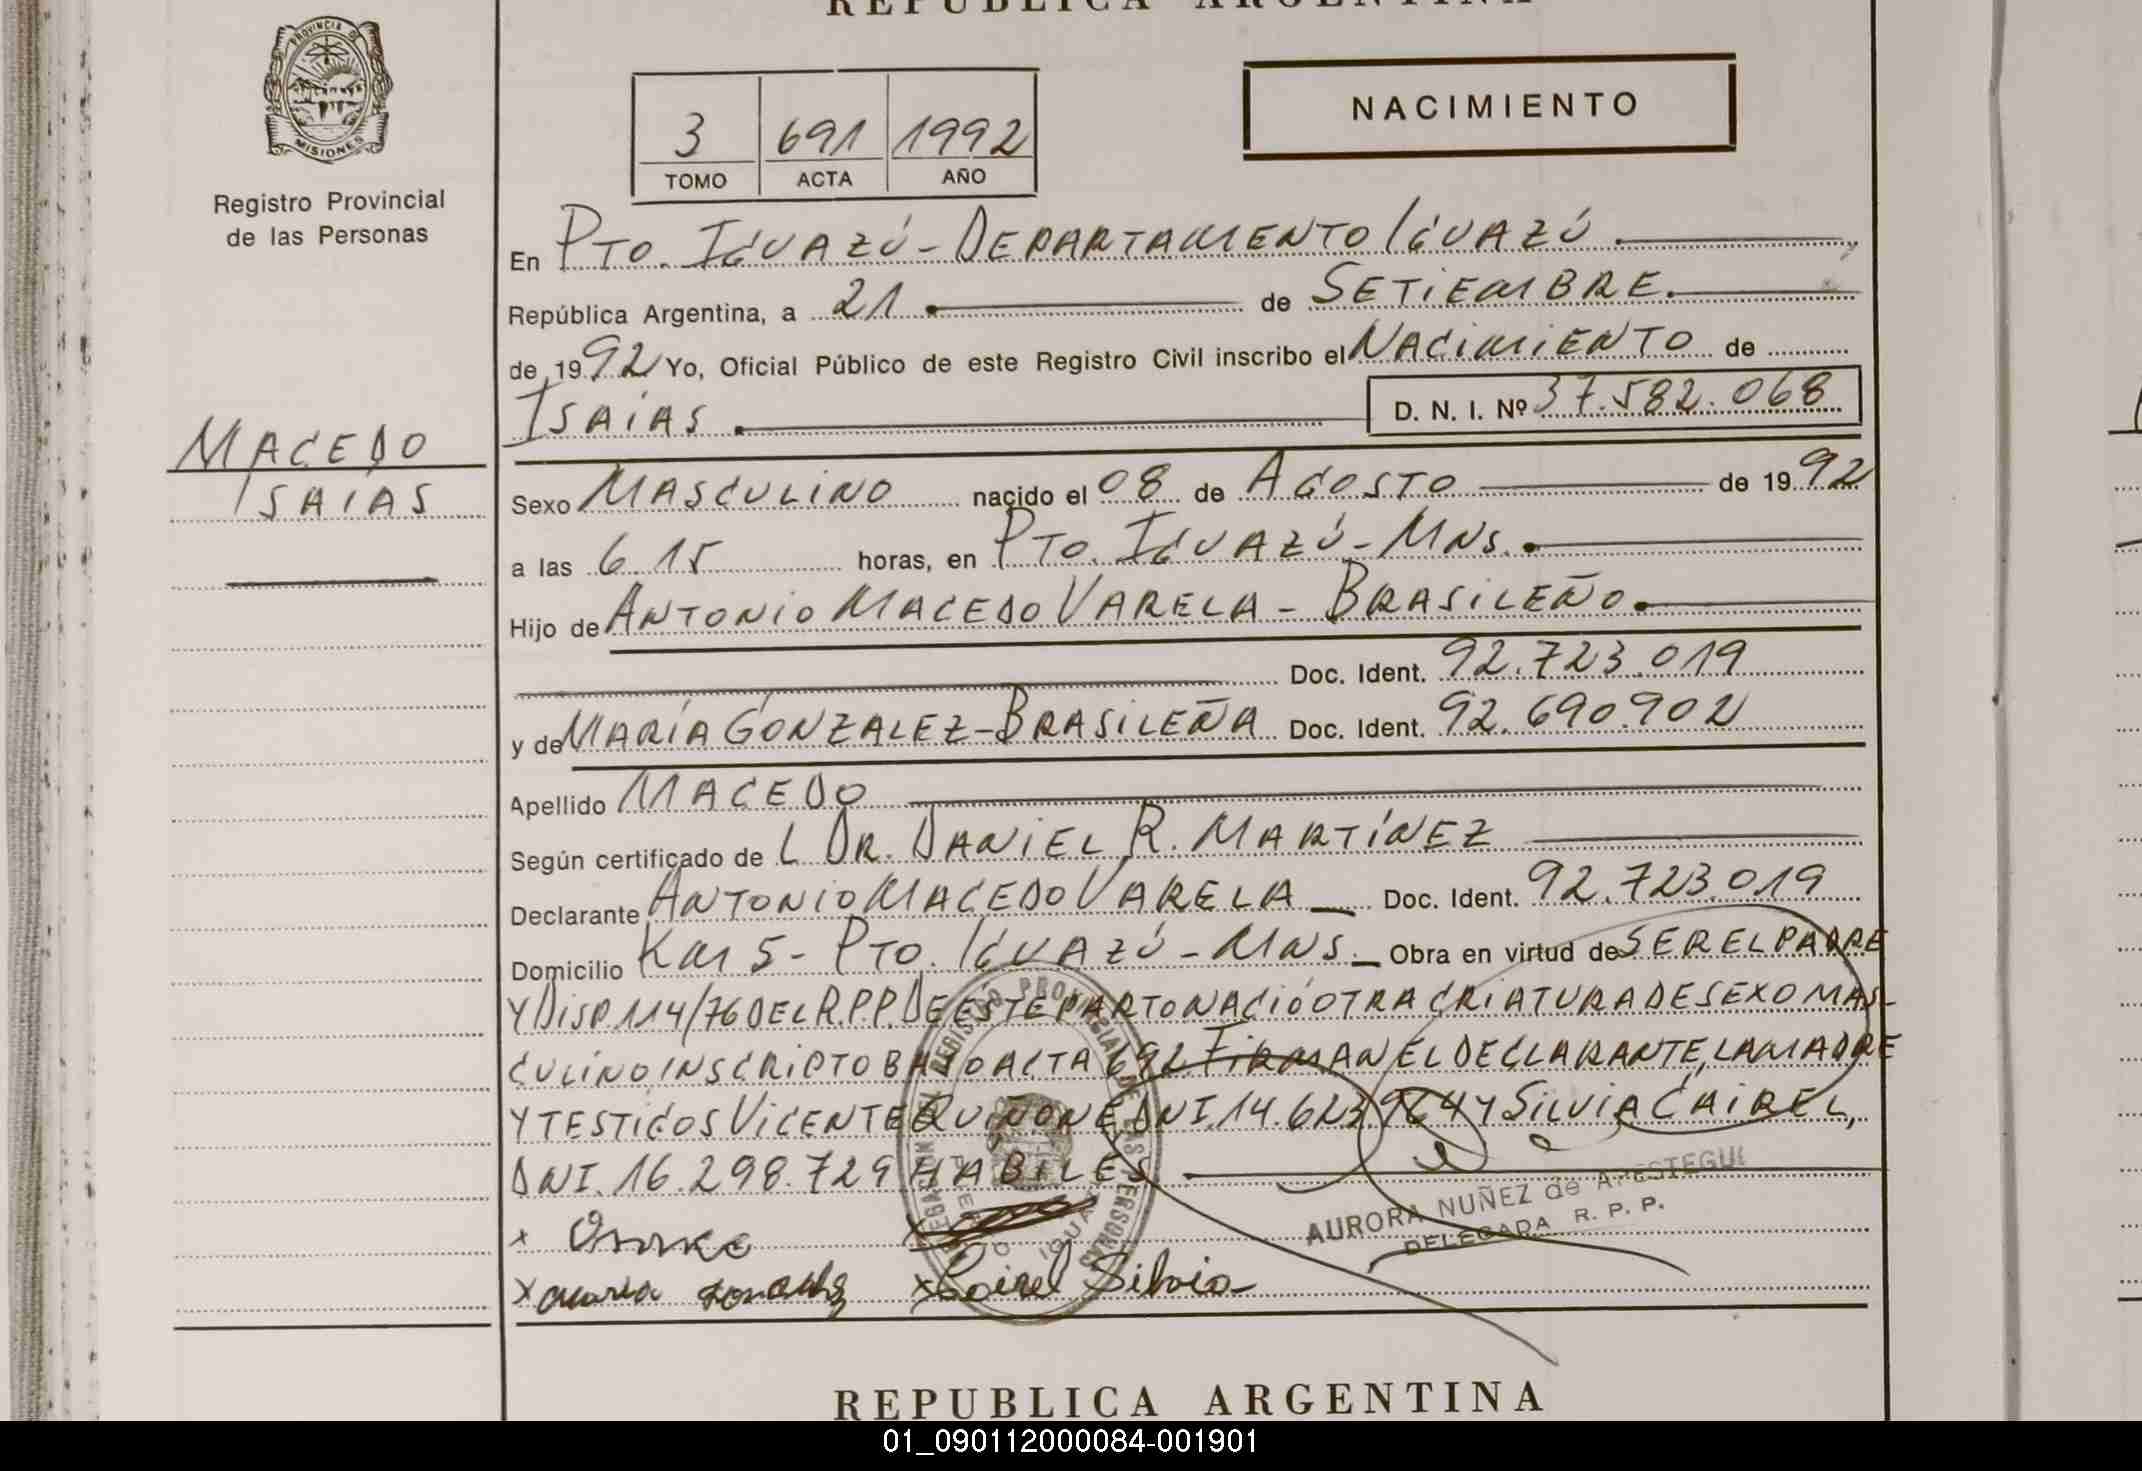 REPUBLICA ARGENTINA
PROVINCIA DE
MISIONES
Registro Provincial
de las Personas
3 691 1992
TOMO ACTA AÑO
NACIMIENTO
En PTO. IGUAZÚ - DEPARTAMENTO IGUAZÚ
República Argentina, a 21 de SETIEMBRE.
de 1992 Yo, Oficial Público de este Registro Civil inscribo el NACIMIENTO de
ISAÍAS D. N. I. Nº 37.582.068
MACEDO
ISAIAS
Sexo MASCULINO nacido el 08 de AGOSTO de 1992
a las 6.15 horas, en PTO. IGUAZÚ - MNS.
Hijo de ANTONIO MACEDO VARELA - BRASILEÑO
Doc. Ident. 92.723.019
y de MARÍA GONZALEZ - BRASILEÑA Doc. Ident. 92.690.902
Apellido MACEDO
Según certificado de L DR. DANIEL R. MARTÍNEZ
Declarante ANTONIO MACEDO VARELA Doc. Ident. 92.723.019
Domicilio Km 5 - PTO. IGUAZÚ - MNS. Obra en virtud de SER EL PADRE
Y DISP. 114/76 DEL R.P.P. DE ESTE PARTO NACIÓ OTRA CRIATURA DE SEXO MAS-
CULINO INSCRIPTO BAJO ACTA 692 FIRMAN EL DECLARANTE, LA MADRE
Y TESTIGOS VICENTE QUIÑONE DNI. 14.623.964 Y SILVIA CAIREL,
DNI. 16.298.729 HÁBILES
AURORA NUÑEZ de ARESTEGUI
DELEGADA R. P. P.
x
x maria gonzalez x Cairel Silvia
REPUBLICA ARGENTINA
01_090112000084-001901